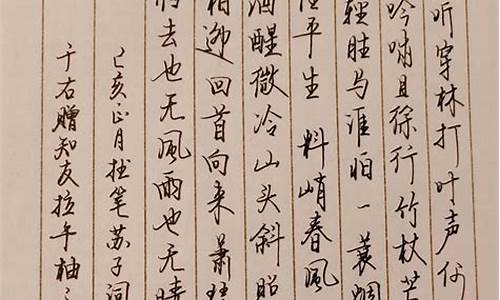 听穿林打叶声何
吟啸且徐行竹杖芒
轻胜马谁怕一蓑烟
任平生 料峭春风
酒醒微冷山头斜照
相迎回首向来萧瑟
归去也无風雨也无晴
己亥正月拙笔苏子词
于右赠知友拉午柚